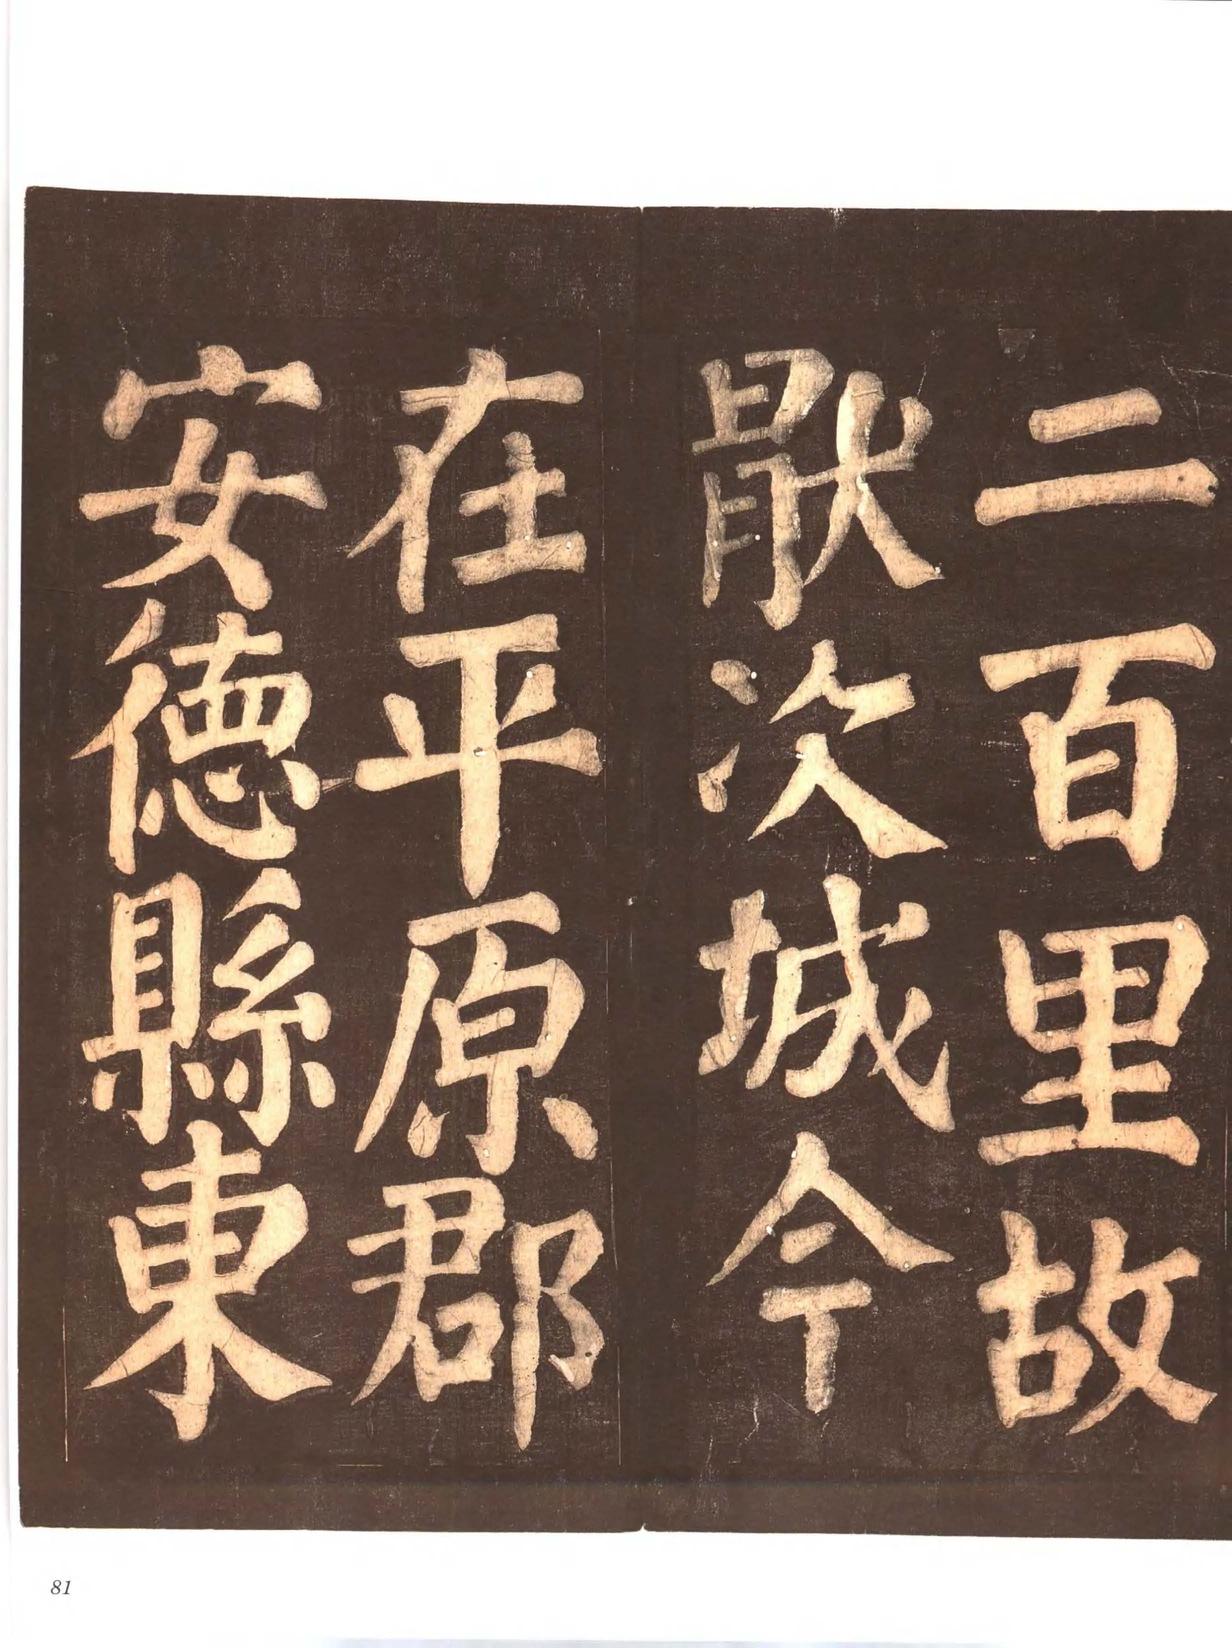 二百里故
猒次城今
在平原郡
安德縣東
81